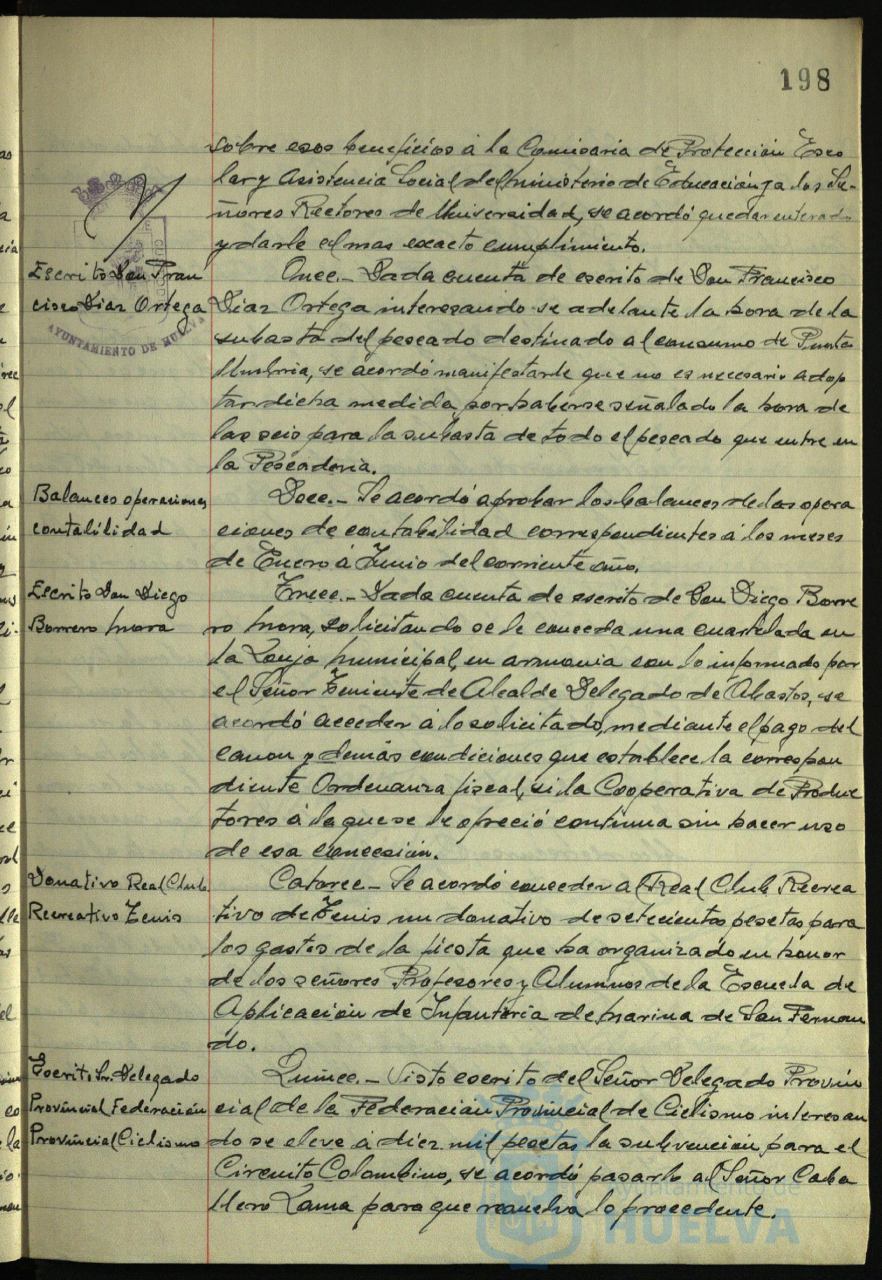 198
sobre esos beneficios á la Comisaria de Protección Esco
lar y Asistencia Social del Ministerio de Educación y a los Se-
ñores Rectores de Universidad, se acordó quedar enterado
y darle el mas exacto cumplimiento.
Escrito Don Fran
cisco Diaz Ortega
AYUNTAMIENTO DE HUELVA
Once.- Dada cuenta de escrito de Don Francisco
Diaz Ortega interesando se adelante la hora de la
subasta del pescado destinado al consumo de Punta
Umbria, se acordó manifestarle que no es necesario adop
tar dicha medida por haberse señalado la hora de
las seis para la subasta de todo el pescado que entre en
la Pescaderia.
Balances operaciones
contabilidad
Doce.- Se acordó aprobar los balances de las opera
ciones de contabilidad correspondientes á los meses
de Enero á Junio del corriente año.
Escrito Don Diego
Borrero Mora
Trece.- Dada cuenta de escrito de Don Diego Borre
ro Mora, solicitando se le conceda una cuartelada en
la Lonja Municipal, en armonia con lo informado por
el Señor Teniente de Alcalde Delegado de Abastos, se
acordó acceder á lo solicitado, mediante el pago del
canon y demás condiciones que establece la correspon
diente Ordenanza fiscal, si la Cooperativa de Produc
tores á la que se le ofreció continua sin hacer uso
de esa concesión.
Donativo Real Club
Recreativo Tenis
Catorce- Se acordó conceder al Real Club Recrea
tivo de Tenis un donativo de setecientas pesetas para
los gastos de la fiesta que ha organizado en honor
de los señores Profesores y Alumnos de la Escuela de
Aplicación de Infanteria de Marina de San Fernan
do.
Escrito Sr. Delegado
Provincial Federación
Provincial Ciclismo
Quince.- Visto escrito del Señor Delegado Provin
cial de la Federación Provincial de Ciclismo interesan
do se eleve á diez mil pesetas la subvención para el
Circuito Colombino, se acordó pasarlo al Señor Caba
llero Lama para que resuelva lo procedente.
Ayuntamiento de
HUELVA